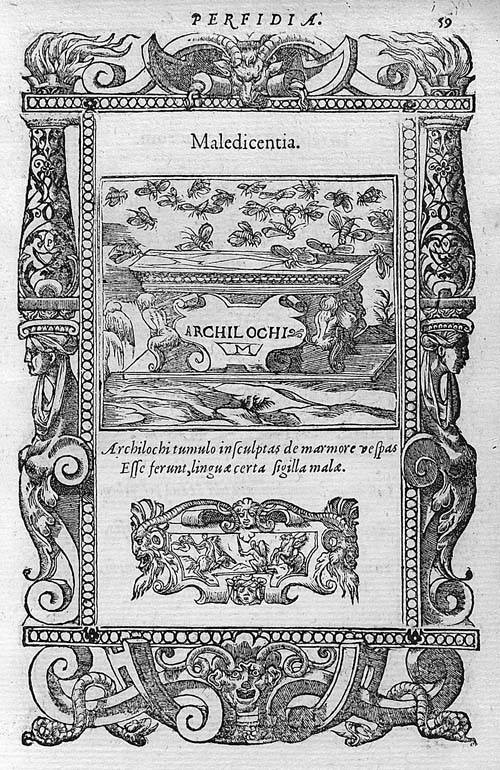 PERFIDIA. 59
Maledicentia.
ARCHILOCHI
M
Archilochi tumulo inſculptas de marmore veſpas
Eſſe ferunt, linguæ certa ſigilla malæ.